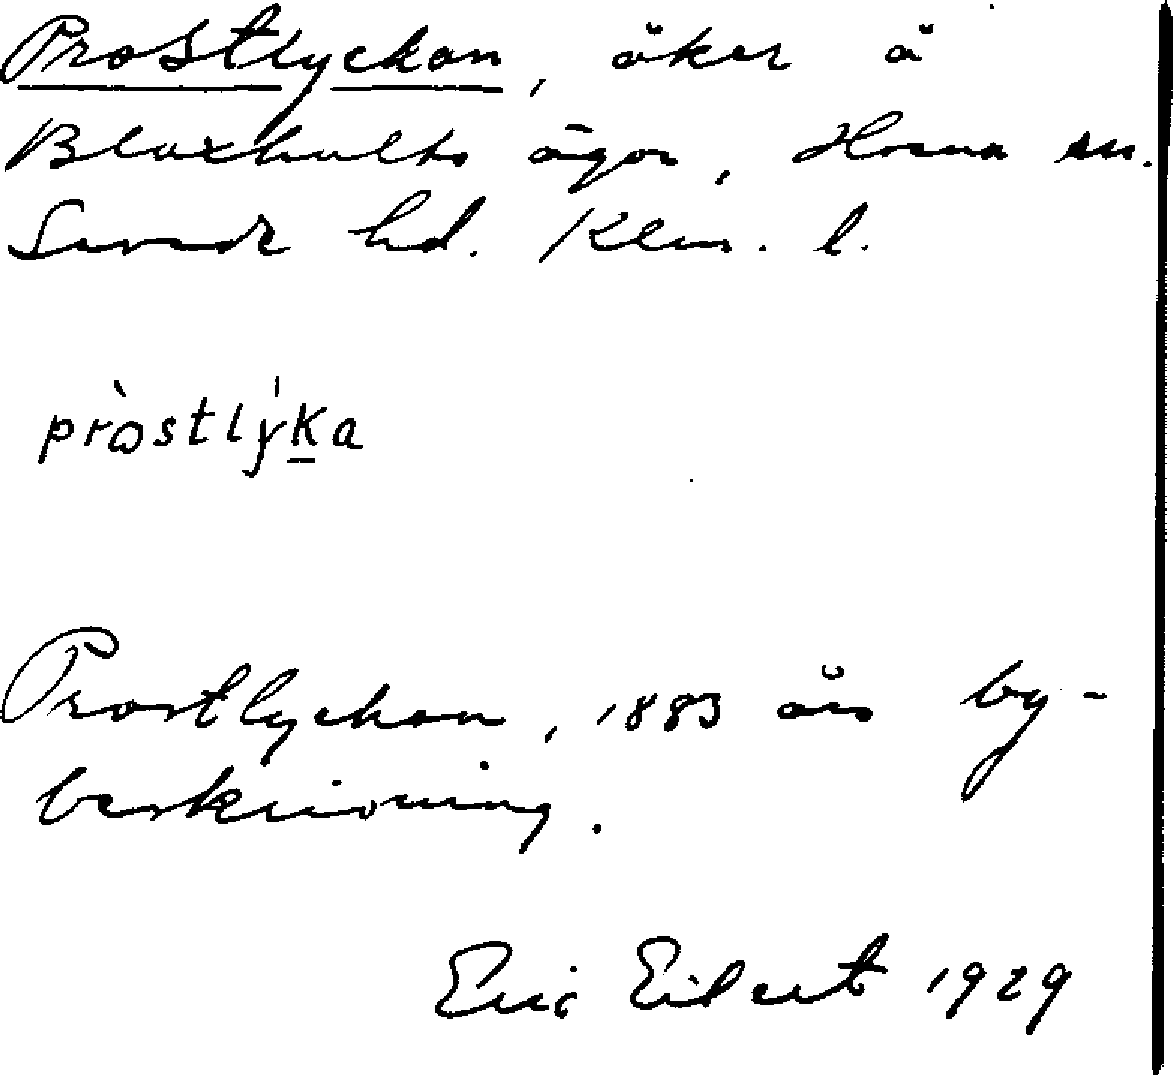 Prostlyckan, åker å
Blaxhults ägor, Hvena sn.
Sevede hd. Klm. l.
pròstlýk̲a
Prostlyckan, 1883 års by-
beskrivning.
Eric Eilert 1929